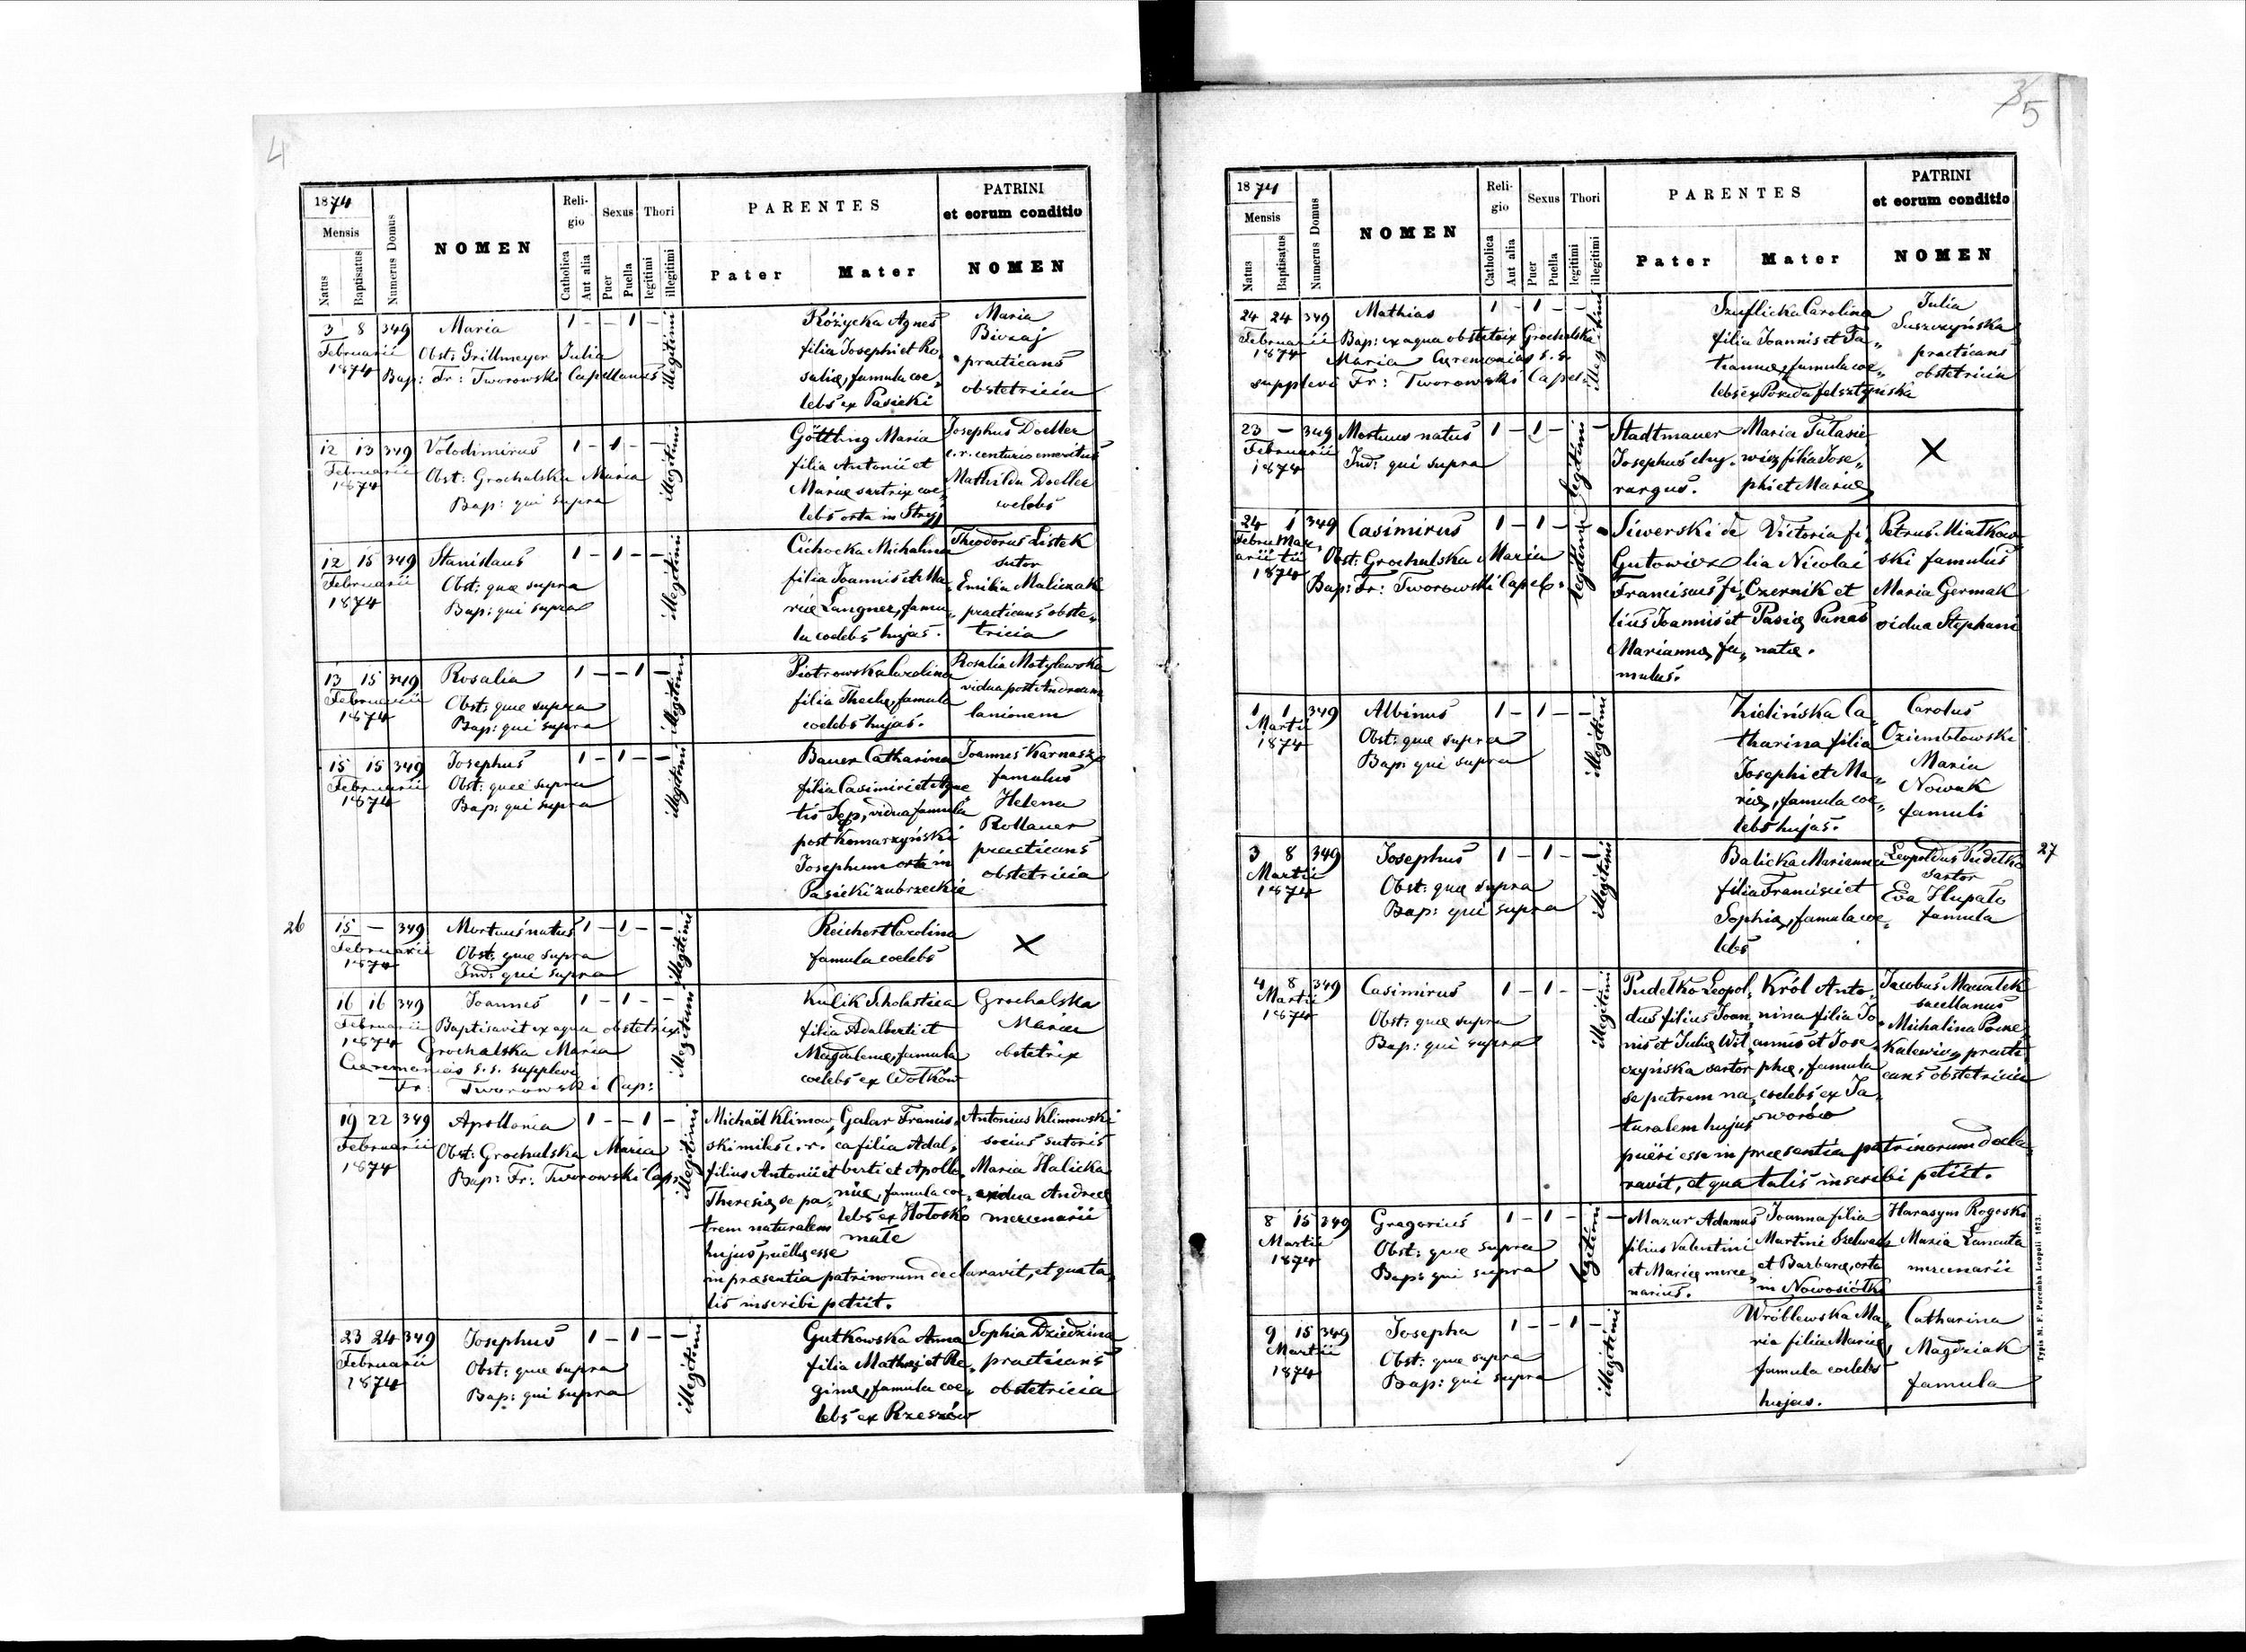 4
1874
Mensis
Natus
Baptisatus
Numerus Domus
NOMEN
Reli-
gio
Catholica
Aut alia
Sexus
Puer
Puella
Thori
legitimi
illegitimi
PARENTES
Pater
Mater
PATRINI
et eorum conditio
NOMEN
3 8 349 Maria 1 - - 1 -
Februarii
1874
Obst: Grillmeyer Julia
Bap: Fr: Tworowski Capellanus
illegitimi
Różycka Agnes
filia Josephi et Ro,
saliæ, famula coe,
lebs ex Pasieki
Maria
Biczaj
practicans
obstetricia
12 13 349 Volodimirus 1 - 1 - -
Februarii
1874
Obst: Grochalska Maria
Bap: qui supra
illegitimi
Göttling Maria
filia Antonii et
Mariæ sartrix coe,
lebs orta in Stryj
Josephus Doeller
c. r. centurio emeritus
Mathilda Doeller
coelebs
12 15 349 Stanislaus 1 - 1 - -
Februarii
1874
Obst: quæ supra
Bap: qui supra
illegitimi
Cichocka Michalina
filia Joannis et Ma,
riæ Langner, famu,
la coelebs hujas.
Theodorus Listek
sutor
Emilia Maliczak
practicans obste,
tricia
13 15 349 Rosalia 1 - - 1 -
Februarii
1874
Obst: quæ supra
Bap: qui supra
illegitimi
Piotrowska Carolina
filia Theclæ, famula
coelebs hujas.
Rosalia Motylewska
vidua post Andream
lanionem
15 15 349 Josephus 1 - 1 - -
Februarii
1874
Obst: quæ supra
Bap: qui supra
illegitimi
Bauer Catharina
filia Casimiri et Agne
tis Sęp, vidua famula
post Komarzyński
Josephum orta in
Pasieki zubrzeckie
Joannes Karnasze
famulus
Helena
Rollauer
practicans
obstetricia
26
15 - 349 Mortuus natus 1 - 1 - -
Februarii
1874
Obst: quæ supra
Ind: qui supra
illegitimi
Reichert Carolina
famula coelebs
X
16 16 349 Joannes 1 - 1 - -
Februarii
1874
Baptisavit ex aqua obstetrix
Grochalska Maria
Cæremonias s. s. supplevi
Fr: Tworowski Cap:
illegitimi
Kulik Scholastica
filia Adalberti et
Magdalenæ, famula
coelebs ex Wołków
Grochalska
Maria
obstetrix
19 22 349 Apollonia 1 - - 1 -
Februarii
1874
Obst: Grochalska Maria
Bap: Fr: Tworowski Cap:
illegitimi
Michaël Klimow,
ski miles c. r.
filius Antonii et
Theresiæ se pa,
trem naturalem
hujus puellæ esse
in præsentia patrinorum declaravit, et qua ta,
lis inscribi petiit.
Galar Francis,
ca filia Adal,
berti et Apollo,
niæ, famula coe,
lebs ex Hołosko
małe
Antonius Klimowski
socius sutoris
Maria Halicka
vidua Andreæ
mercenarii
23 24 349 Josephus 1 - 1 - -
Februarii
1874
Obst: quæ supra
Bap: qui supra
illegitimi
Gutkowska Anna
filia Mathæi et Re,
ginæ, famula coe,
lebs ex Rzeszów
Sophia Dziedzina
practicans
obstetricia
5
1874
Mensis
Natus
Baptisatus
Numerus Domus
NOMEN
Reli-
gio
Catholica
Aut alia
Sexus
Puer
Puella
Thori
legitimi
illegitimi
PARENTES
Pater
Mater
PATRINI
et eorum conditio
NOMEN
24 24 349 Mathias 1 - 1 - -
Februarii
1874
Bap: ex aqua obstetrix Grochalska
Maria Cæremonias s. s.
supplevi Fr: Tworowski Capel:
illegitimi
Szuflicka Carolina
filia Joannis et Ta,
tiannæ, famula coe,
lebs ex felsztyńska
Julia
Suszczyńska
practicans
obstetricia
23 - 349 Mortuus natus 1 - 1 -
Februarii
1874
Ind: qui supra
legitimi
Stadtmauer
Josephus chy,
rurgus.
Maria Tułasie,
wicz filia Jose,
phi et Mariæ
X
24 1 349 Casimirus 1 - 1 -
Februarii Martii
1874
Obst: Grochalska Maria
Bap: Fr: Tworowski Capel:
legitimi
Siwerski de
Gutowicz
Franciscus fi,
lius Joannis et
Mariannæ, fa,
mulus.
Victoria fi,
lia Nicolai
Czernik et
Pasiæ Panas
natæ.
Petrus Miatkow
ski famulus
Maria Germak
vidua Stephani
1 1 349 Albinus 1 - 1 - -
Martii
1874
Obst: quæ supra
Bap: qui supra
illegitimi
Zielińska Ca,
tharina filia
Josephi et Ma,
riæ, famula coe,
lebs hujas.
Carolus
Oziembłowski
Maria
Nowak
famuli
27
3 8 349 Josephus 1 - 1 - -
Martii
1874
Obst: quæ supra
Bap: qui supra
illegitimi
Balicka Marianna
filia Francisci et
Sophiæ, famula coe,
lebs
Leopoldus Pudełko
sartor
Eva Hupało
famula
4 8 349 Casimirus 1 - 1 - -
Martii
1874
Obst: quæ supra
Bap: qui supra
illegitimi
Pudełko Leopol,
dus filius Joan,
nis et Juliæ Wil,
czyńska sartor
se patrem na,
turalem hujus
pueri esse in præsentia patrinorum decla
ravit, et qua talis inscribi petiit.
Król Anto,
nina filia Jo,
annis et Jose,
phæ, famula
coelebs ex Ja,
worów
Jacobus Maciałek
sacellanus
Michalina
practi,
cans obstetricia
8 15 349 Gregorius 1 - 1 -
Martii
1874
Obst: quæ supra
Bap: qui supra
legitimi
Mazur Adamus
filius Valentini
et Mariæ merce,
narius.
Joanna filia
Martini
et Barbaræ, orta
in Nowosiółki
Harasym Rogoski
Maria Lancuta
mercenarii
9 15 349 Josepha 1 - - 1 -
Martii
1874
Obst: quæ supra
Bap: qui supra
illegitimi
Wróblewska Ma,
ria filia Mariæ,
famula coelebs
hujas.
Catharina
Magdziak
famula
Typis M. F. Poremba Leopoli 1873.